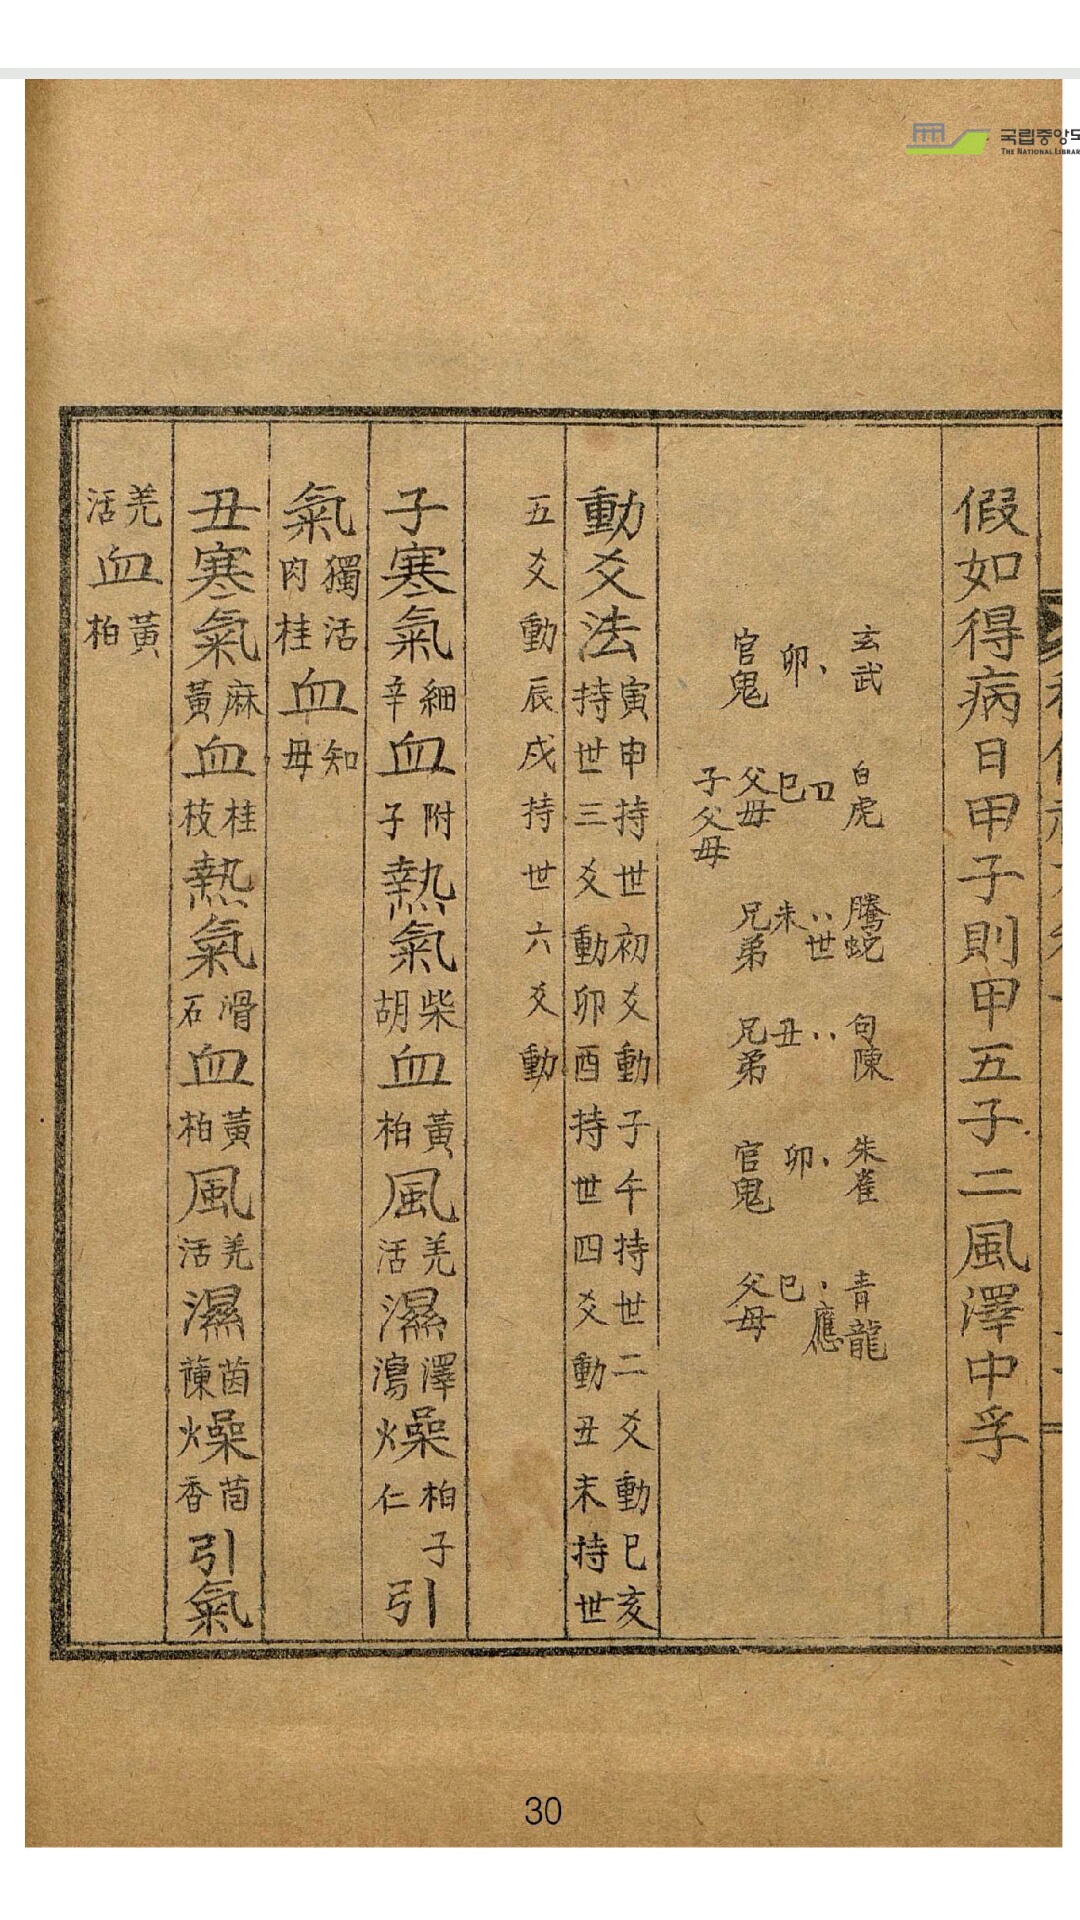 국립중앙도
THE NATIONAL LIBRAR
假如得病日甲子則甲五子二風澤中孚
玄武 白虎 騰蛇 句陳 朱雀 青龍
卯、 巳 未世 丑 卯、 巳、應
官鬼 父母 兄弟 兄弟 官鬼 父母
子父母
動爻法 寅申持世初爻動子午持世二爻動巳亥
持世三爻動卯酉持世四爻動丑未持世
五爻動辰戌持世六爻動
子寒氣細辛血附子熱氣柴胡血黃柏風羌活濕澤瀉燥柏子仁引
氣獨活肉桂血知母
丑寒氣麻黃血桂枝熱氣滑石血黃柏風羌活濕茵蔯燥茴香引氣
羌活血黃柏
30